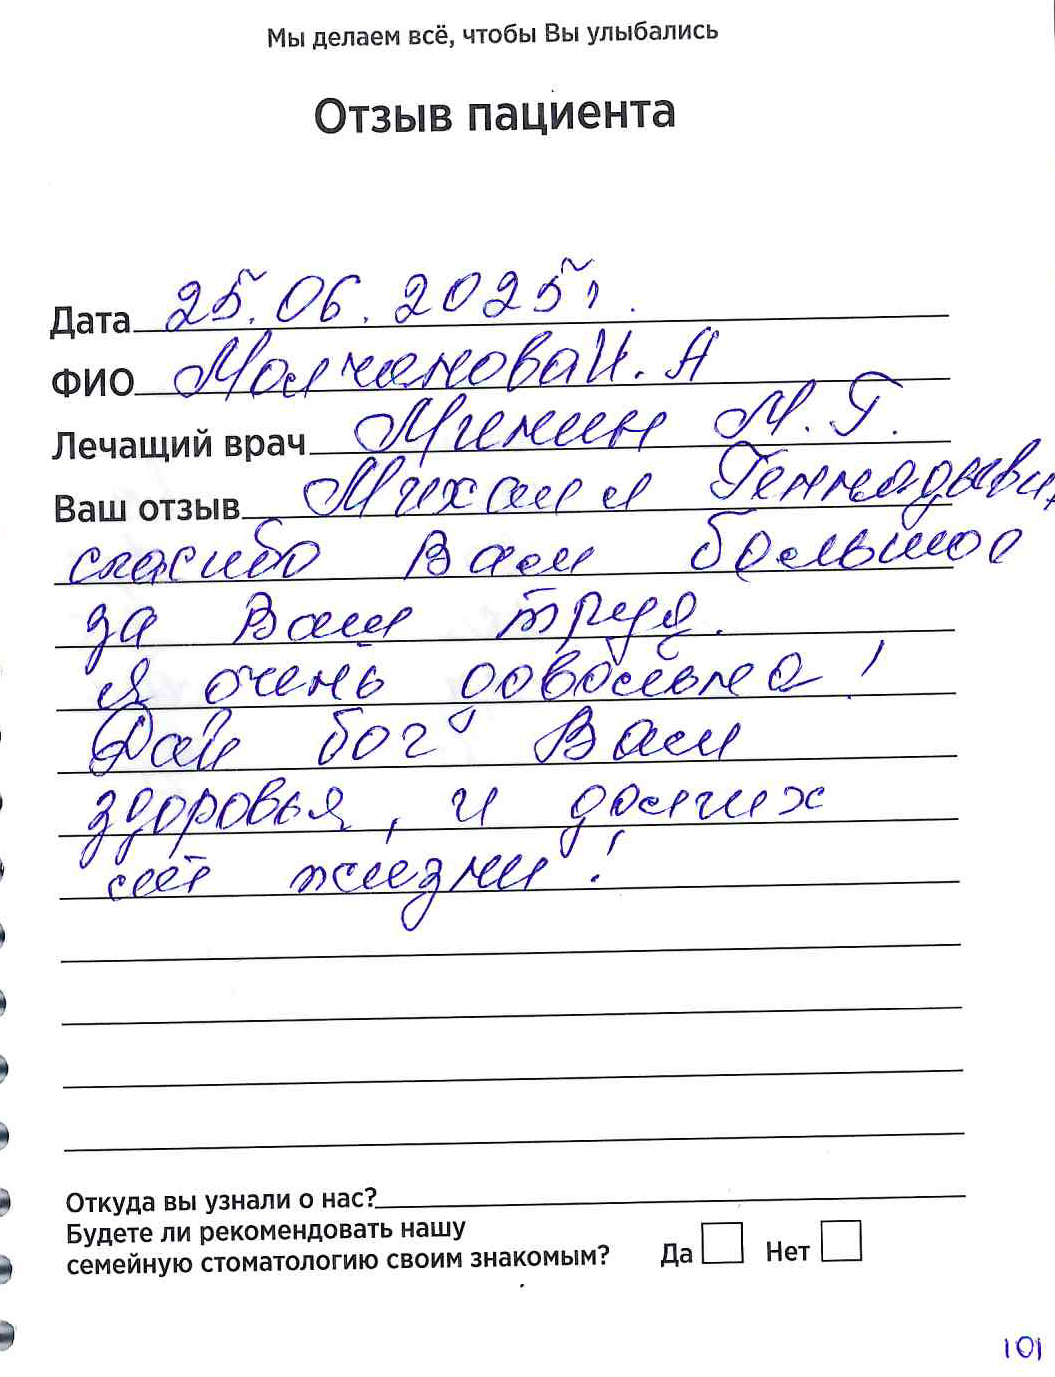 Мы делаем всё, чтобы Вы улыбались
Отзыв пациента
Дата 25.06.2025г.
ФИО Молчанова Н. А
Лечащий врач Минин М. Г.
Ваш отзыв Михаил Геннадьеви
спасибо Вам большое
за Ваш труд.
Я очень довольна!
Дай бог Вам
здоровья, и долгих
лет жизни!
Откуда вы узнали о нас?
Будете ли рекомендовать нашу
семейную стоматологию своим знакомым? Да Нет
101